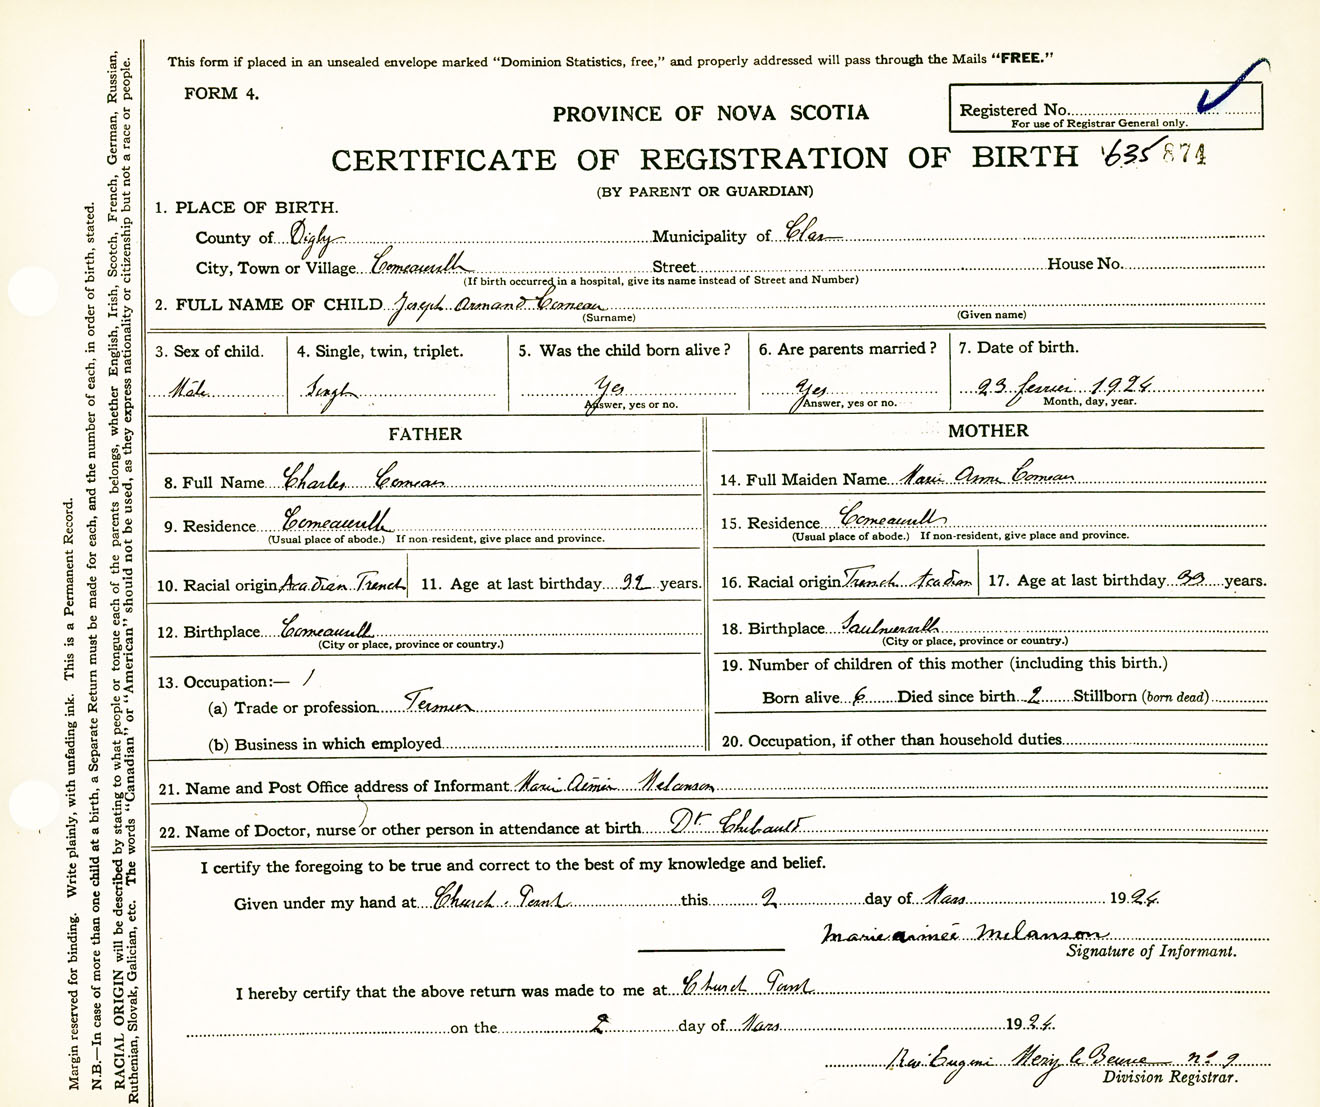 This form if placed in an unsealed envelope marked “Dominion Statistics, free,” and properly addressed will pass through the Mails “FREE.”
FORM 4.
PROVINCE OF NOVA SCOTIA
Registered No.
For use of Registrar General only.
CERTIFICATE OF REGISTRATION OF BIRTH 635 874
(BY PARENT OR GUARDIAN)
1. PLACE OF BIRTH.
County of Digby Municipality of Clare
City, Town or Village Comeauville Street House No.
(If birth occurred in a hospital, give its name instead of Street and Number)
2. FULL NAME OF CHILD Joseph Armand Comeau
(Surname) (Given name)
3. Sex of child. 4. Single, twin, triplet. 5. Was the child born alive? 6. Are parents married? 7. Date of birth.
Male Single Yes Yes 23 fevrier 1924
Answer, yes or no. Answer, yes or no. Month, day, year.
FATHER MOTHER
8. Full Name Charles Comeau 14. Full Maiden Name Marie Anne Comeau
9. Residence Comeauville 15. Residence Comeauville
(Usual place of abode.) If non-resident, give place and province. (Usual place of abode.) If non-resident, give place and province.
10. Racial origin Acadian French 11. Age at last birthday years. 16. Racial origin French Acadian 17. Age at last birthday 33 years.
12. Birthplace Comeauville 18. Birthplace Saulnierville
(City or place, province or country.) (City or place, province or country.)
13. Occupation:— 19. Number of children of this mother (including this birth.)
(a) Trade or profession Born alive 6 Died since birth 2 Stillborn (born dead)
(b) Business in which employed 20. Occupation, if other than household duties
21. Name and Post Office address of Informant Marie Aimée Melanson
22. Name of Doctor, nurse or other person in attendance at birth Dr
I certify the foregoing to be true and correct to the best of my knowledge and belief.
Given under my hand at Church Point this 2 day of Mars 1924
Marie aimée Melanson
Signature of Informant.
I hereby certify that the above return was made to me at Church Point
on the 2 day of Mars 1924.
Rev Eugene no 9
Division Registrar.
Margin reserved for binding. Write plainly, with unfading ink. This is a Permanent Record.
N.B.—In case of more than one child at a birth, a Separate Return must be made for each, and the number of each, in order of birth, stated.
RACIAL ORIGIN will be described by stating to what people or tongue each of the parents belongs, whether English, Irish, Scotch, French, German, Russian,
Ruthenian, Slovak, Galician, etc. The words “Canadian” or “American” should not be used, as they express nationality or citizenship but not a race or people.